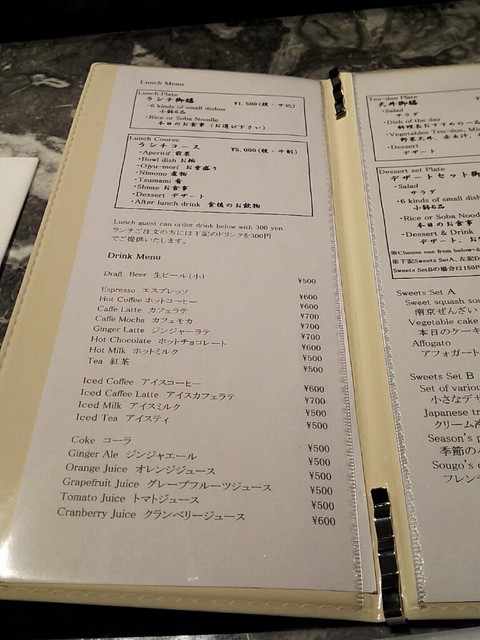 Lunch Menu
Lunch Plate
ランチ御膳 ¥1,500(税・サ込)
・6 kinds of small dishes
小鉢6品
・Rice or Soba Noodle
本日のお食事(お選び下さい)
Lunch Course
ランチコース ¥5,000(税・サ別)
・Aperitif 前菜
・Bowl dish お椀
・Ojyu-mori お重盛り
・Nimono 煮物
・Tsumami 肴
・Shime お食事
・Dessert デザート
・After lunch drink 食後のお飲物
Lunch guest can order drink below with 300 yen.
ランチご注文の方には下記のドリンクを300円
でご提供いたします。
Drink Menu
Draft Beer 生ビール(小) ¥500
Espresso エスプレッソ ¥600
Hot Coffee ホットコーヒー ¥600
Caffe Latte カフェラテ ¥700
Caffe Mocha カフェモカ ¥700
Ginger Latte ジンジャーラテ ¥700
Hot Chocolate ホットチョコレート ¥600
Hot Milk ホットミルク ¥500
Tea 紅茶 ¥500
Iced Coffee アイスコーヒー ¥600
Iced Caffee Latte アイスカフェラテ ¥700
Iced Milk アイスミルク ¥500
Iced Tea アイスティ ¥500
Coke コーラ ¥500
Ginger Ale ジンジャエール ¥500
Orange Juice オレンジジュース ¥500
Grapefruit Juice グレープフルーツジュース ¥500
Tomato Juice トマトジュース ¥500
Cranberry Juice クランベリージュース ¥600
Ten-don Plate
天丼御膳
・Salad
サラダ
・Dish of the day
・Vegetables Ten-don,
・Dessert
デザート
Dessert set Plate
デザートセット
・Salad
サラダ
・6 kinds of small
小鉢6品
・Rice or Soba
本日のお食事
・Dessert & Drink
デザート、
※Choose one from
※下記Sweets Set A、
Sweets SetBの場合は150円
Sweets Set A
Sweet squash
南京ぜんざい
Vegetable cake
本日のケーキ
Affogato
アフォガート
Sweets Set B
Set of
小さな
Japanese
クリーム
Season's
季節の
Sougo's
フレン